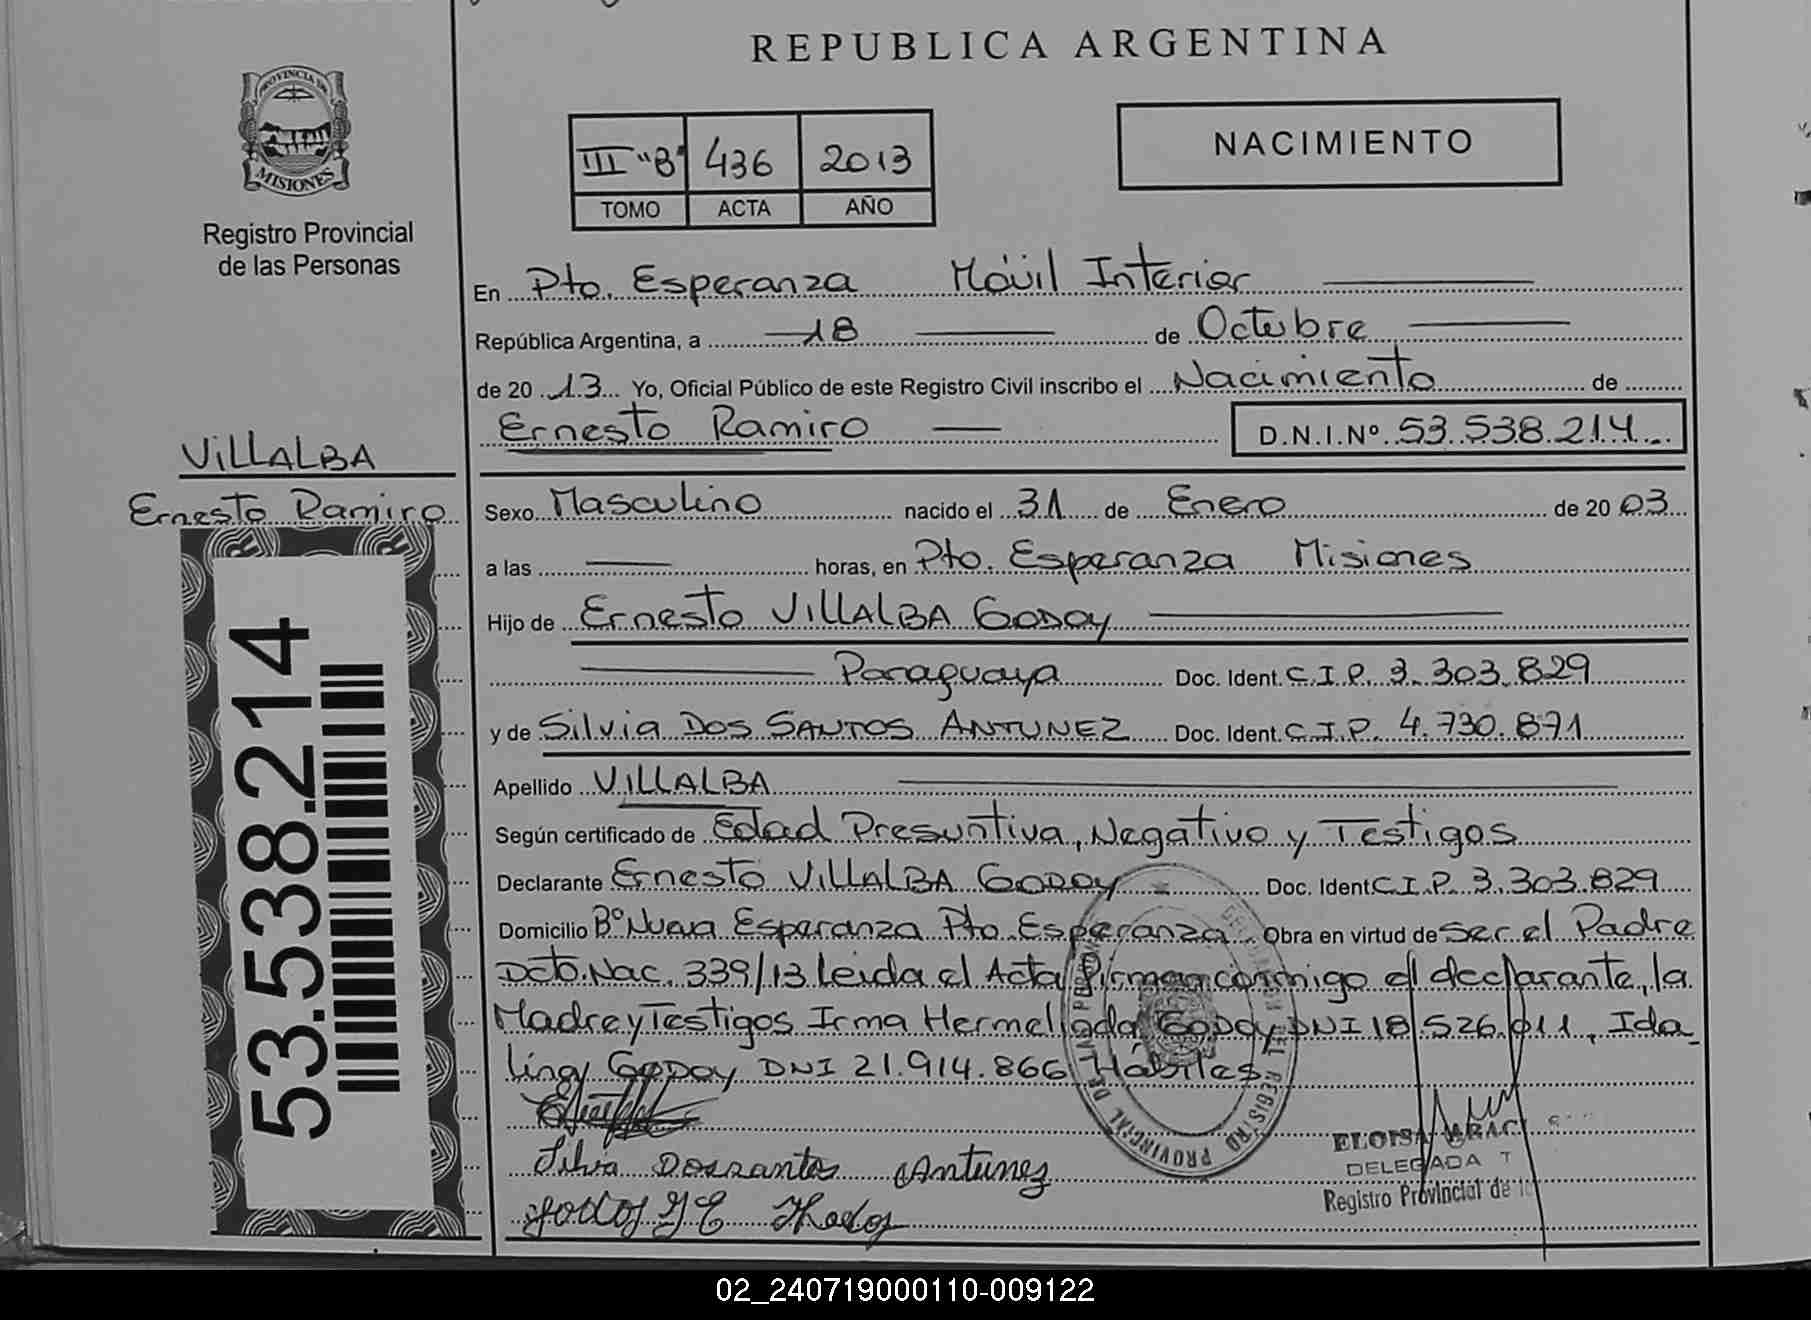 REPUBLICA ARGENTINA
PROVINCIA DE
MISIONES
Registro Provincial
de las Personas
III "B" 436 2013
TOMO ACTA AÑO
NACIMIENTO
En Pto. Esperanza Móvil Interior
República Argentina, a 18 de Octubre
de 20 13 Yo, Oficial Público de este Registro Civil inscribo el Nacimiento de
Ernesto Ramiro D.N.I.Nº 53.538.214
VILLALBA
Ernesto Ramiro
53.538.214
Sexo Masculino nacido el 31 de Enero de 20 03
a las horas, en Pto. Esperanza Misiones
Hijo de Ernesto VILLALBA GODOY
Paraguaya Doc. Ident. C.I.P. 3.303.829
y de Silvia DOS SANTOS ANTUNEZ Doc. Ident. C.I.P. 4.730.871
Apellido VILLALBA
Según certificado de Edad Presuntiva, Negativo y Testigos
Declarante Ernesto VILLALBA GODOY Doc. Ident C.I.P. 3.303.829
Domicilio Bº Nueva Esperanza Pto. Esperanza Obra en virtud de Ser el Padre
Dcto. Nac. 339/13 Leida el Acta Firman conmigo el declarante, la
Madre y Testigos Irma Hermelinda GODOY DNI 18.526.011, Ida_
lina GODOY DNI 21.914.866 Hábiles
Silvia Dossantos Antunez
ELOISA
DELEGADA T
Registro Provincial de
REGISTRO PROVINCIAL DE LAS
02_240719000110-009122